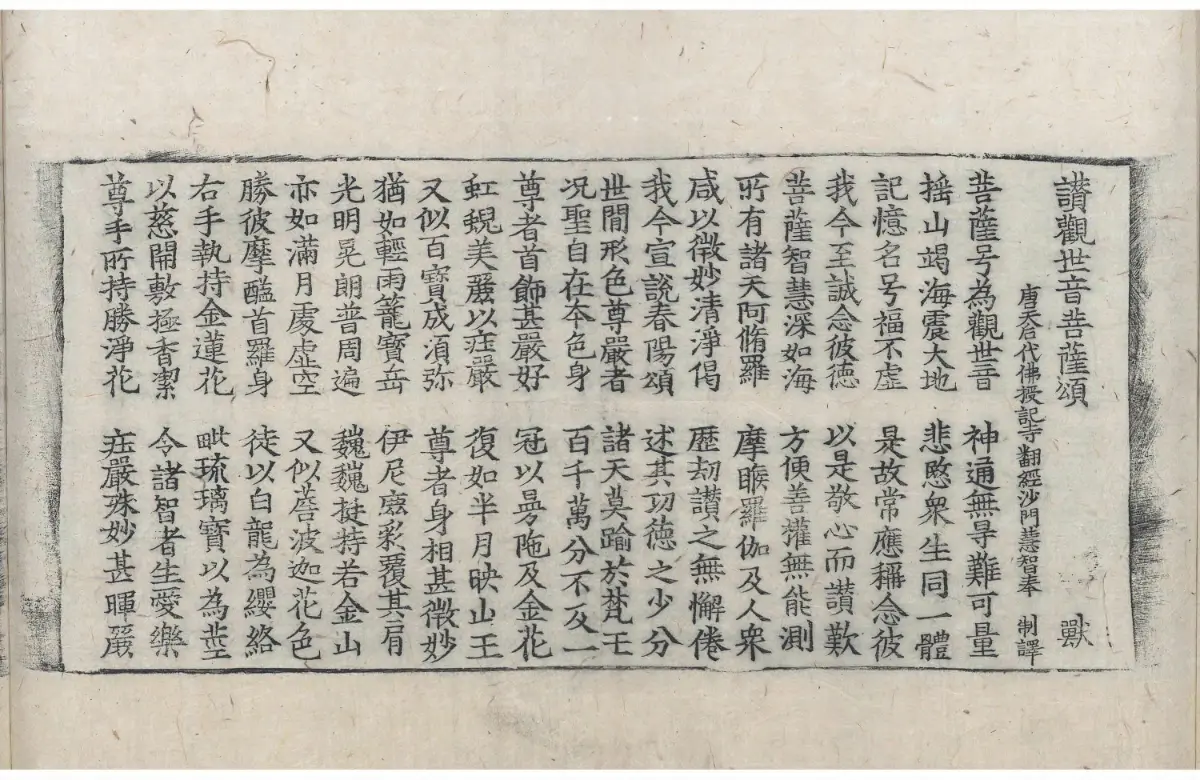 讃觀世音菩薩頌 獸
唐天后代佛授記寺翻經沙門慧智奉 制譯
菩薩号為觀世音 神通無㝵難可量
揺山竭海震大地 悲愍衆生同一體
記憶名号福不虛 是故常應稱念彼
我今至誠念彼德 以是敬心而讃歎
菩薩智慧深如海 方便善權無能測
所有諸天阿脩羅 摩睺羅伽及人衆
咸以微妙清淨偈 歷劫讃之無懈倦
我今宣說春陽頌 述其功德之少分
世間形色尊嚴者 諸天莫踰於梵王
况聖自在夲色身 百千萬分不及一
尊者首飾甚嚴好 冠以曼陁及金花
虹蜺美麗以莊嚴 復如半月映山王
又似百寶成湏弥 尊者身相甚微妙
猶如輕雨籠寶岳 伊尼鹿彩覆其肩
光明晃朗普周遍 巍巍挺特若金山
亦如滿月處虛空 又似薝波迦花色
勝彼摩醯首羅身 徒以白龍為纓絡
右手執持金蓮花 毗琉璃寶以為莖
以慈開敷極香潔 令諸智者生愛樂
尊手所持勝淨花 莊嚴殊妙甚暉麗